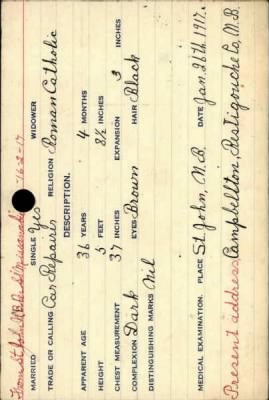 From St John N.B. Per S/S 16-2-17
MARRIED SINGLE Yes WIDOWER
TRADE OR CALLING Car Repairer RELIGION Roman Catholic
DESCRIPTION.
APPARENT AGE 36 YEARS 4 MONTHS
HEIGHT 5 FEET 8½ INCHES
CHEST MEASUREMENT 37 INCHES EXPANSION 3 INCHES
COMPLEXION Dark EYES Brown HAIR Black
DISTINGUISHING MARKS Nil
MEDICAL EXAMINATION. PLACE St. John, N.B. DATE Jan. 26th 1917.
Present address, Campbellton, Restigouche Co, N.B.